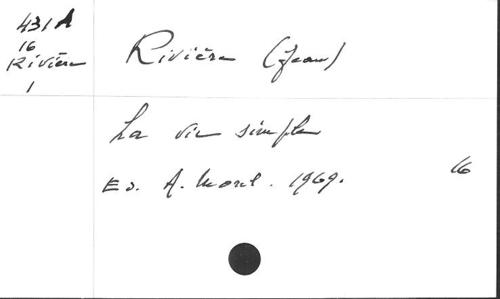 431A
16
Rivière
1
Rivière (Jean)
La vie simple
Ed. A. Morel. 1969.
16